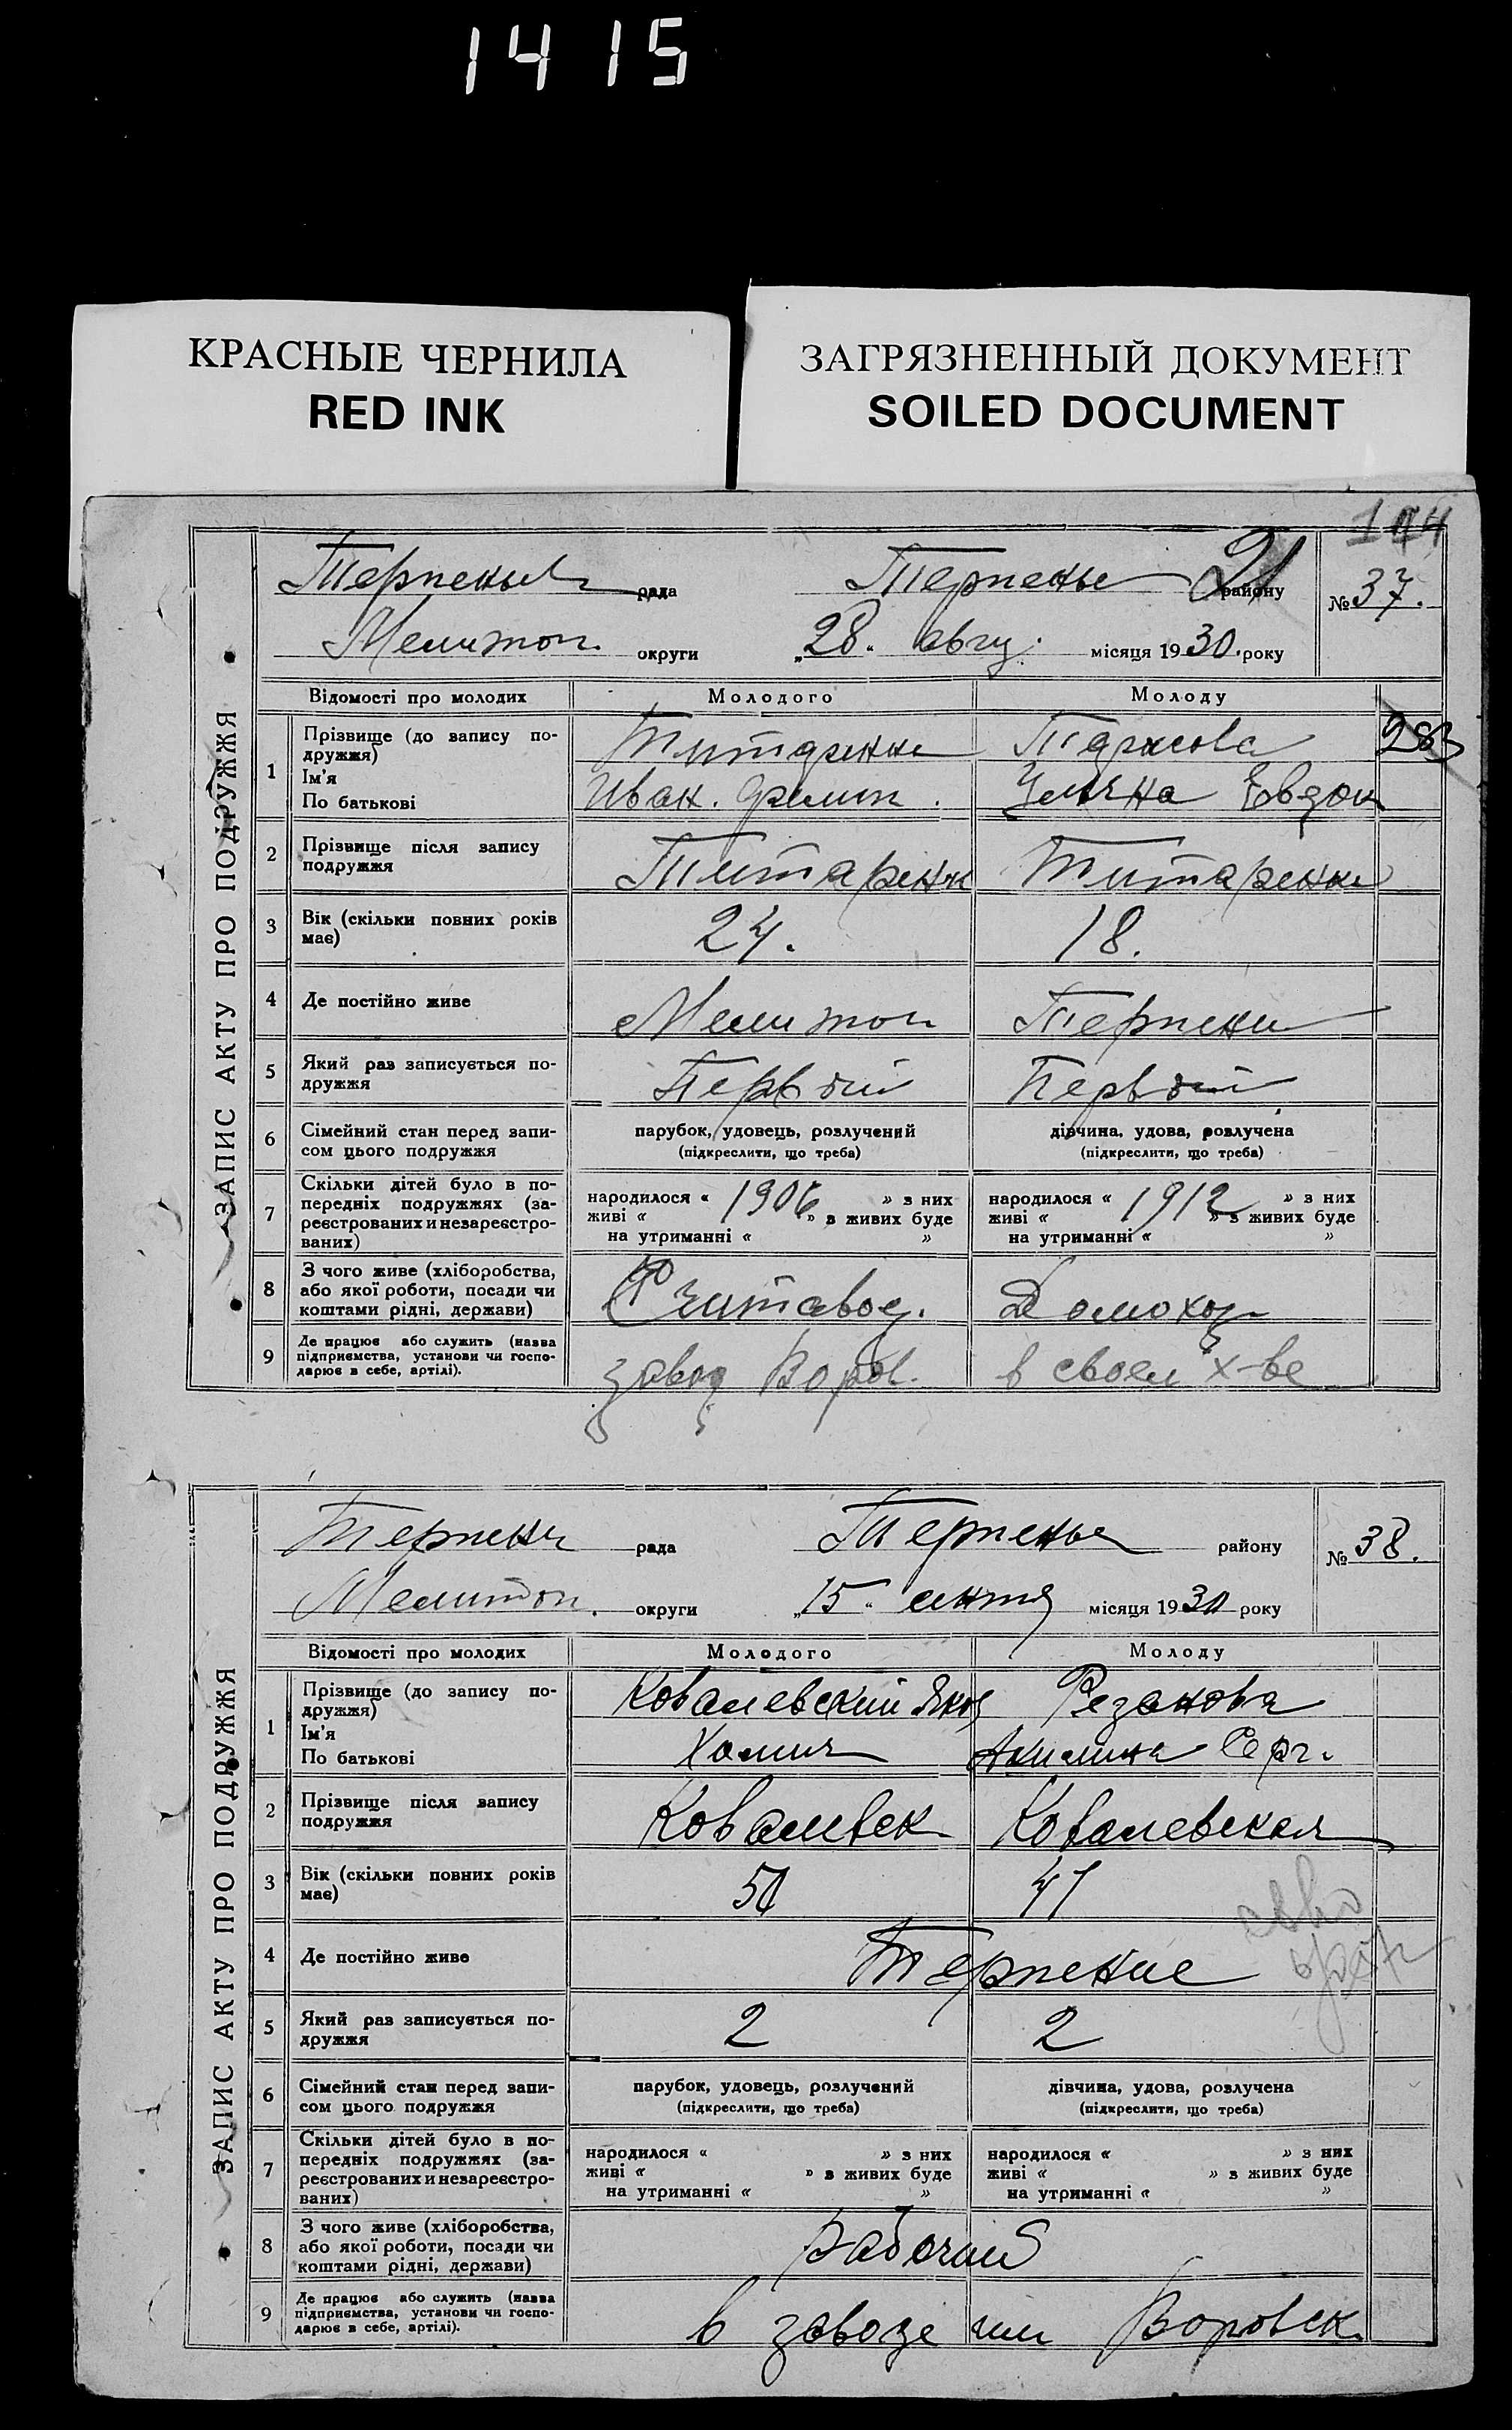 1415
КРАСНЫЕ ЧЕРНИЛА
RED INK
ЗАГРЯЗНЕННЫЙ ДОКУМЕНТ
SOILED DOCUMENT
ЗАПИС АКТУ ПРО ПОДРУЖЖЯ
рада Терпенье 21 району № 37.
Мелитоп. округи „28“ авгу. місяця 1930. року
Відомості про молодих Молодого Молоду
1 Прізвище (до запису по-
дружжя) Титаренко Тарасова 283
Ім'я
По батькові Иван. Филип. Евдок
2 Прізвище після запису
подружжя Титаренк Титаренко
3 Вік (скільки повних років
має) 24. 18.
4 Де постійно живе Мелитоп Терпени
5 Який раз записується по-
дружжя Первый Первый
6 Сімейний стан перед запи-
сом цього подружжя парубок, удовець, розлучений
(підкреслити, що треба) дівчина, удова, розлучена
(підкреслити, що треба)
7 Скільки дітей було в по-
передніх подружжях (за-
реєстрованих и незареєстро-
ваних) народилося « 1906 » з них
живі « » в живих буде
на утриманні « » народилося « 1912 » з них
живі « » з живих буде
на утриманні « »
8 З чого живе (хліборобства,
або якої роботи, посади чи
коштами рідні, держави) Домохоз
9 Де працює або служить (назва
підприємства, установи чи госпо-
дарює в себе, артілі). завод Воров. в своем х-ве
ЗАПИС АКТУ ПРО ПОДРУЖЖЯ
Терпени рада Терпенье району № 38.
Мелитоп. округи „15“ сентя місяця 1930 року
Відомості про молодих Молодого Молоду
1 Прізвище (до запису по-
дружжя) Ковалевский Яков Резанова
Ім'я
По батькові Хомич Акилина Серг.
2 Прізвище після запису
подружжя Ковалевск Ковалевская
3 Вік (скільки повних років
має) 47
4 Де постійно живе Терпение
5 Який раз записується по-
дружжя 2 2
6 Сімейний стан перед запи-
сом цього подружжя парубок, удовець, розлучений
(підкреслити, що треба) дівчина, удова, розлучена
(підкреслити, що треба)
7 Скільки дітей було в по-
передніх подружжях (за-
реєстрованих и незареєстро-
ваних) народилося « » з них
живі « » в живих буде
на утриманні « » народилося « » з них
живі « » з живих буде
на утриманні « »
8 З чого живе (хліборобства,
або якої роботи, посади чи
коштами рідні, держави) Рабочий
9 Де працює або служить (назва
підприємства, установи чи госпо-
дарює в себе, артілі). в заводе им Воровск.